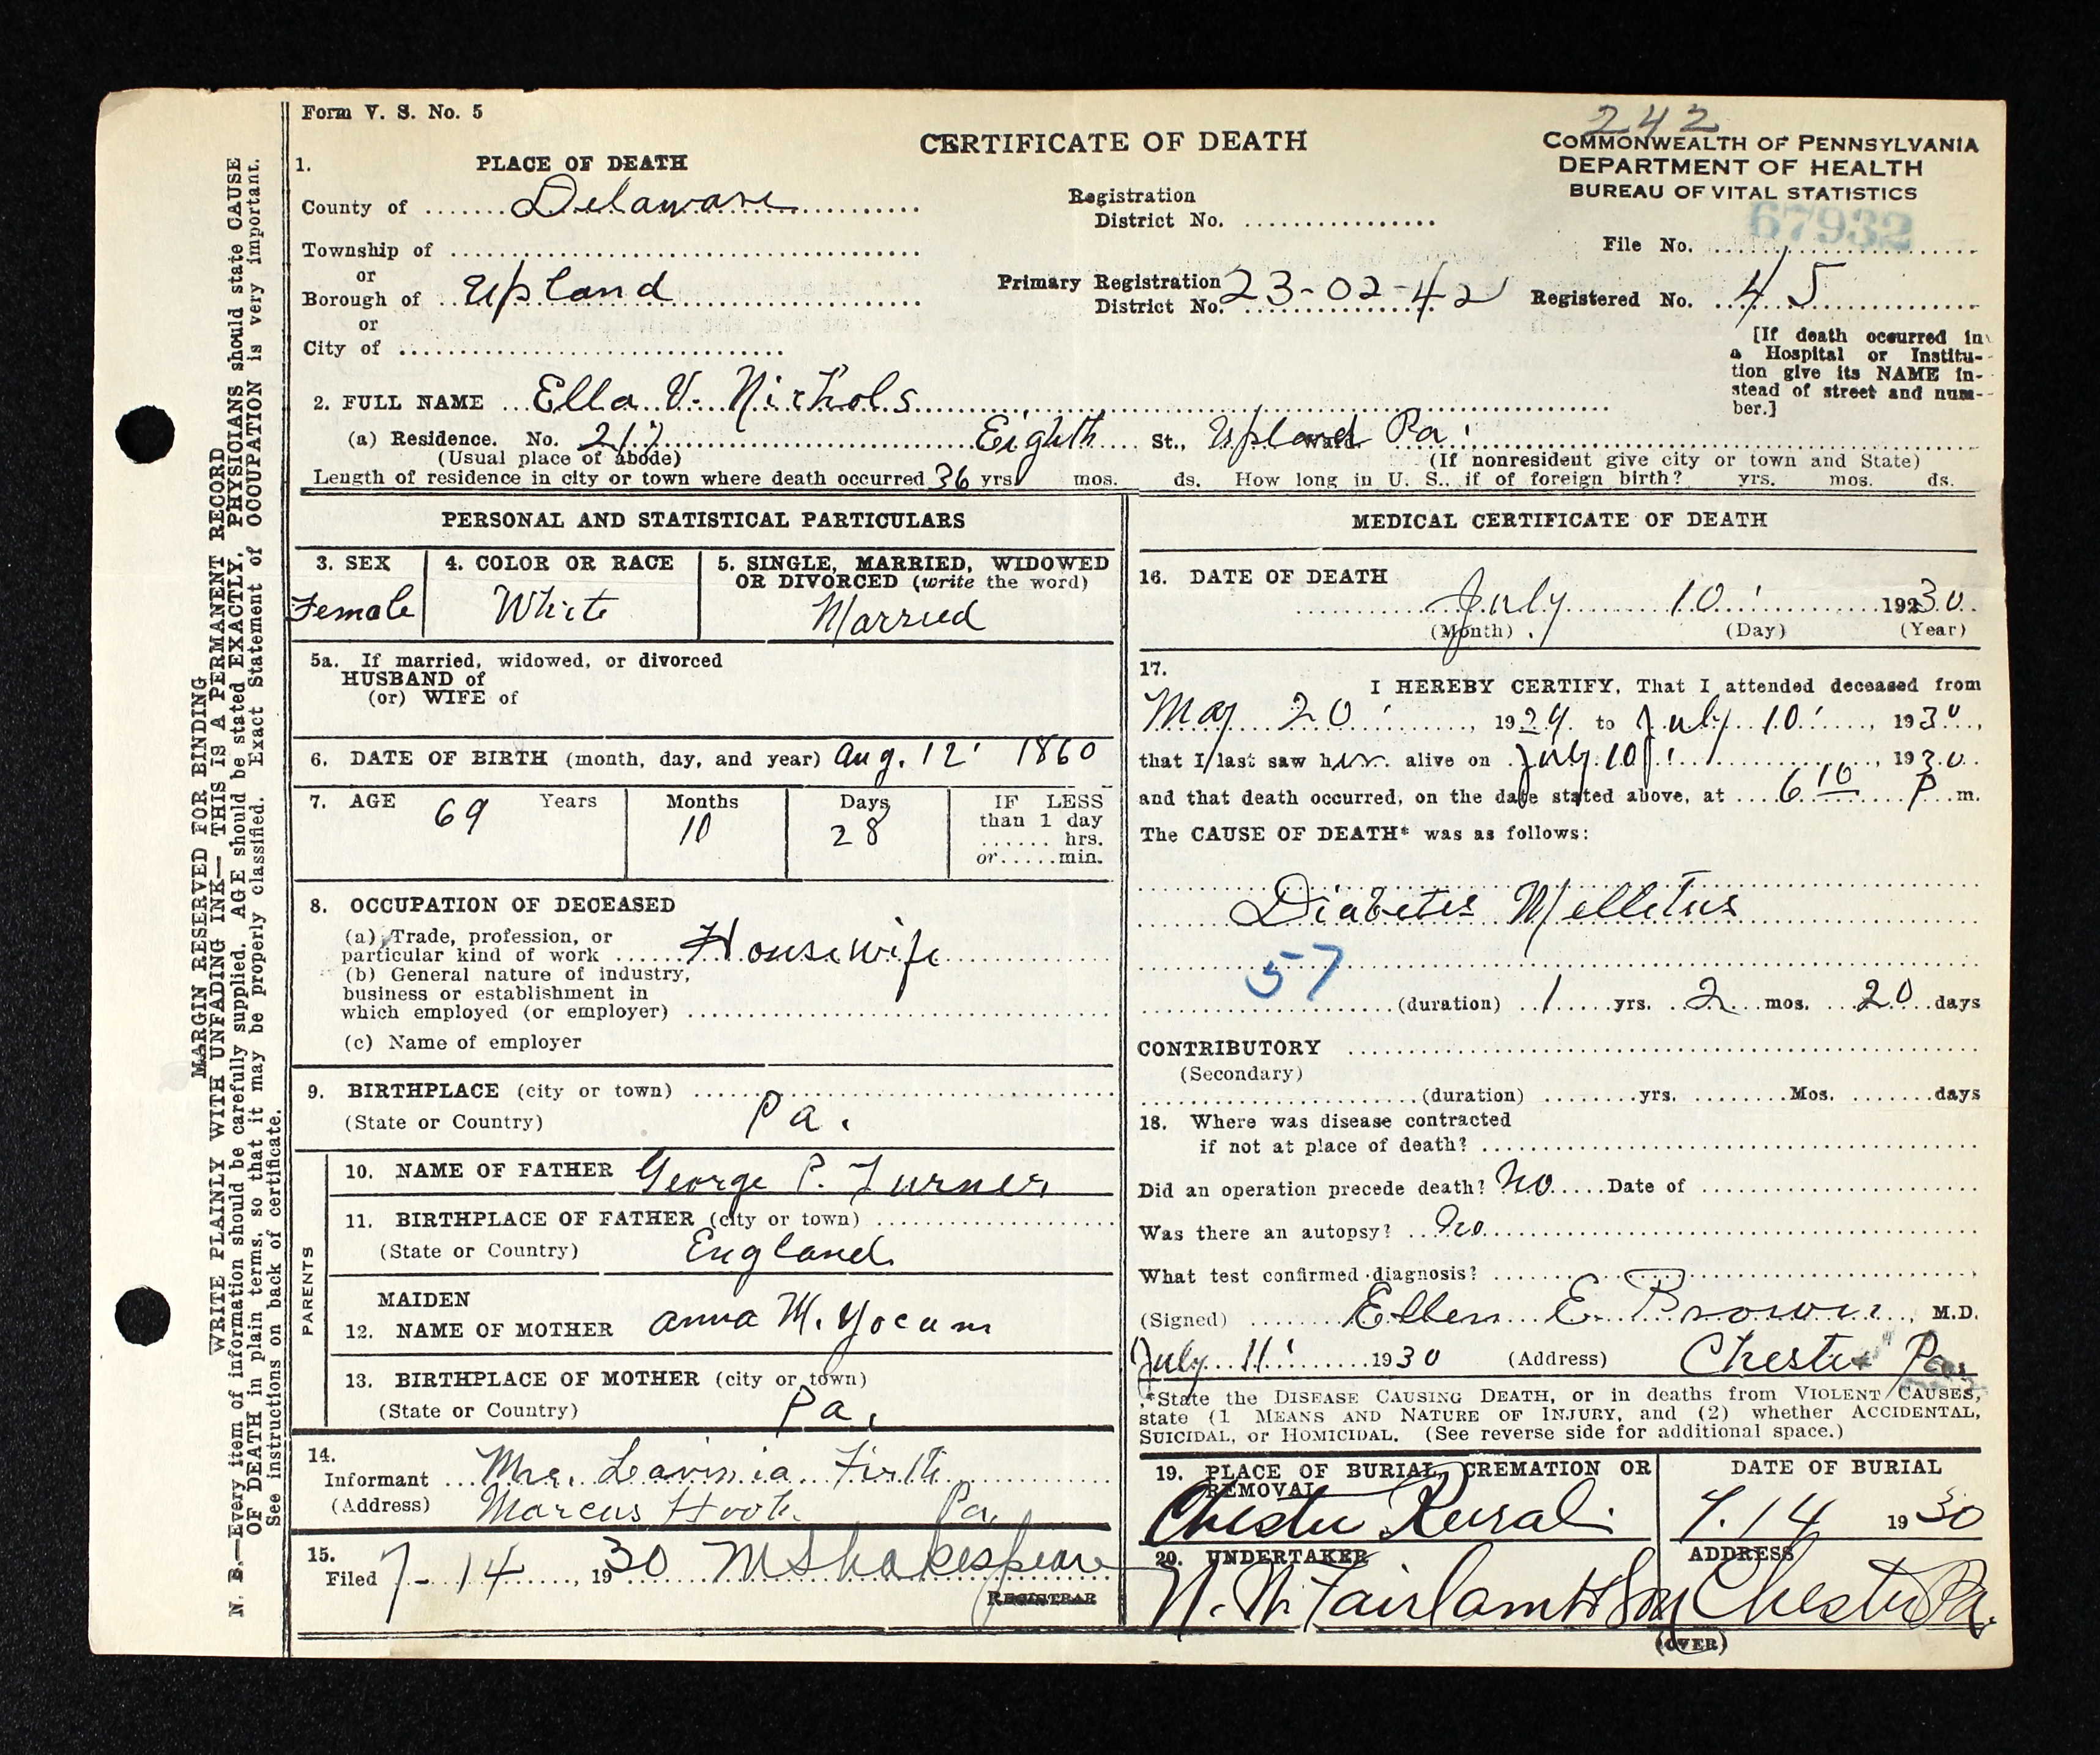 242
Form V. S. No. 5
CERTIFICATE OF DEATH
COMMONWEALTH OF PENNSYLVANIA
DEPARTMENT OF HEALTH
BUREAU OF VITAL STATISTICS
1. PLACE OF DEATH
County of Delaware
Registration District No.
67932
File No.
Township of
or
Borough of Upland
Primary Registration District No. 23-02-42
Registered No. 45
or
City of
[If death occurred in a Hospital or Institution give its NAME instead of street and number.]
2. FULL NAME Ella V. Nichols
(a) Residence. No. 217 Eighth St., Upland Pa. Ward.
(Usual place of abode) (If nonresident give city or town and State)
Length of residence in city or town where death occurred 36 yrs. mos. ds. How long in U. S., if of foreign birth? yrs. mos. ds.
PERSONAL AND STATISTICAL PARTICULARS
3. SEX
Female
4. COLOR OR RACE
White
5. SINGLE, MARRIED, WIDOWED
OR DIVORCED (write the word)
Married
5a. If married, widowed, or divorced
HUSBAND of
(or) WIFE of
6. DATE OF BIRTH (month, day, and year) Aug. 12 1860
7. AGE 69 Years
Months 10
Days 28
IF LESS
than 1 day
hrs.
or min.
8. OCCUPATION OF DECEASED
(a) Trade, profession, or
particular kind of work Housewife
(b) General nature of industry,
business or establishment in
which employed (or employer)
(c) Name of employer
9. BIRTHPLACE (city or town)
(State or Country) Pa.
PARENTS
10. NAME OF FATHER George P. Turner
11. BIRTHPLACE OF FATHER (city or town)
(State or Country) England
MAIDEN
12. NAME OF MOTHER Anna M. Yocum
13. BIRTHPLACE OF MOTHER (city or town)
(State or Country) Pa.
14.
Informant Mrs. Lavinia Firth
(Address) Marcus Hook Pa.
15.
Filed 7-14, 1930 M Shakespeare
REGISTRAR
MEDICAL CERTIFICATE OF DEATH
16. DATE OF DEATH
July 10 192 30
(Month) (Day) (Year)
17.
I HEREBY CERTIFY, That I attended deceased from
May 20, 1929 to July 10, 1930,
that I last saw her alive on July 10, 1930
and that death occurred, on the date stated above, at 6 10 P m.
The CAUSE OF DEATH* was as follows:
Diabetes Mellitus
57
(duration) 1 yrs. 2 mos. 20 days
CONTRIBUTORY
(Secondary)
(duration) yrs. Mos. days
18. Where was disease contracted
if not at place of death?
Did an operation precede death? No Date of
Was there an autopsy? No
What test confirmed diagnosis?
(Signed) Ellen E. Brown, M.D.
July 11 1930 (Address) Chester Pa.
*State the DISEASE CAUSING DEATH, or in deaths from VIOLENT CAUSES,
state (1 MEANS AND NATURE OF INJURY, and (2) whether ACCIDENTAL,
SUICIDAL, or HOMICIDAL. (See reverse side for additional space.)
19. PLACE OF BURIAL, CREMATION OR
REMOVAL
Chester Rural
DATE OF BURIAL
7. 14 1930
20. UNDERTAKER
N. W. Fairlamb & Son
ADDRESS
Chester Pa.
(OVER)
MARGIN RESERVED FOR BINDING
WRITE PLAINLY WITH UNFADING INK—THIS IS A PERMANENT RECORD
N. B.—Every item of information should be carefully supplied. AGE should be stated EXACTLY. PHYSICIANS should state CAUSE
OF DEATH in plain terms, so that it may be properly classified. Exact Statement of OCCUPATION is very important.
See instructions on back of certificate.